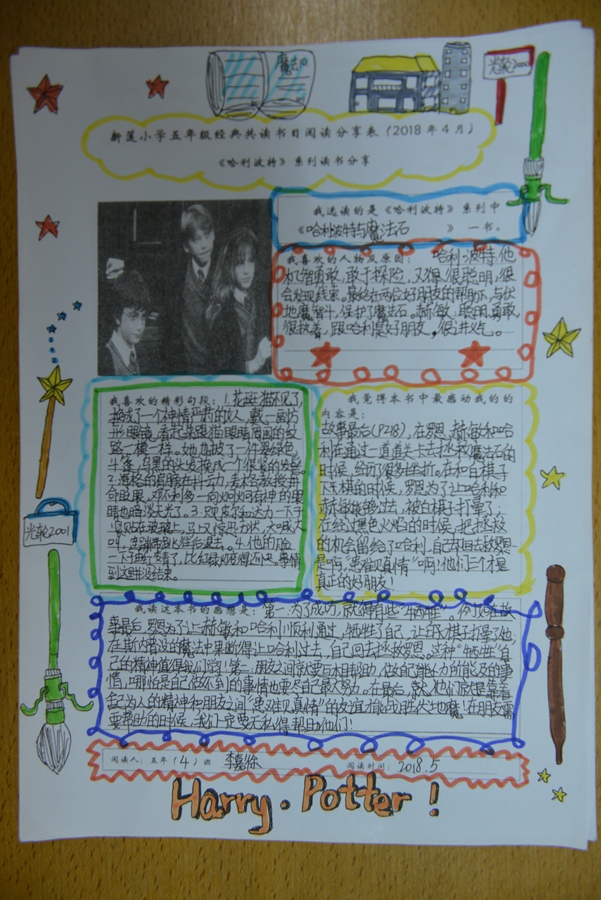 魔法
光轮2000
新莲小学五年级经典共读书目阅读分享表(2018年4月)
《哈利波特》系列读书分享
我选读的是《哈利波特》系列中
《哈利波特与魔法石 》一书。
我喜欢的人物及原因: 哈利·波特,他
机智勇敢,敢于探险,又很聪明,很
会发现线索。最终在两位好朋友的帮助下,与伏
地魔智斗,保护了魔法石。赫敏,聪明,勇敢
很执着,跟哈利是好朋友,很讲义气。
我喜欢的精彩句段:1.花斑猫不见了,
换成了一个神情严肃的女人,戴一副方
形眼镜,看起来跟猫眼睛周围的纹
路一模一样。她也披了一件翠绿色
斗篷,乌黑的头发挽成一个很紧的发髻。
2.海格的肩膀在抖动,麦格教授拼
命眨眼,邓布利多一向炯炯有神的眼
睛也暗淡无光了。3.
4.他的脸
一下由红变青了,比红绿灯变得还快。事情
到这并没结束。
我觉得本书中最感动我的的
内容是:
故事最后(P218),在罗恩、赫敏和哈
利在通过一道道关卡去拯救魔法石的
时候,经历很多坎坷。在和白棋子
下大棋的时候,罗恩为了让哈利和
赫敏能够过去,被白棋子打晕了,
在经过黑色火焰的时候,把拯救
的机会留给了哈利,自己却回去救罗恩
是啊,“患难见真情”啊!他们三个才是
真正的好朋友!
我读这本书的感想是: 第一:为了成功,就得有些“牺牲”。例如在故
事最后,罗恩为了让赫敏和哈利顺利通过,牺牲了自己,让白棋打晕了他,
在斯内普的魔法中果断得让哈利过去,自己回去拯救罗恩。这种“牺牲”自
己的精神值得我们学习!第二,朋友之间就要互相帮助,做自己能力所能及的事
情,哪怕是自己做不到的事情也要尽自己最大努力。在最后,就
舍己为人的精神和朋友之间“患难见真情”的友谊才能战胜伏地魔!在朋友需
要帮助的时候,我们一定要无私得帮助他们!
阅读人:五年(4)班 李嘉 阅读时间: 2018.5
光轮2001
Harry·Potter!